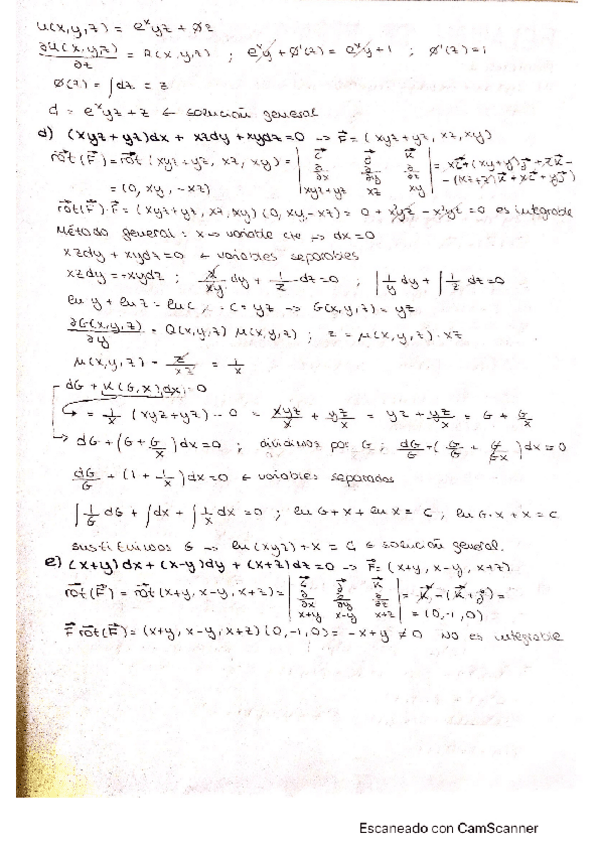 u(x,y,z) = eˣyz + øz
∂u(x,y,z)/∂z = R(x,y,z) ; eˣy + ø'(z) = eˣy + 1 ; ø'(z) = 1
ø(z) = ∫dz = z
d = eˣyz + z ← solución general
d) (xyz + yz)dx + xzdy + xydz = 0 → F⃗ = (xyz + yz, xz, xy)
rot(F⃗) = rot(xyz + yz, xz, xy) = | i⃗ j⃗ k⃗ ; ∂/∂x ∂/∂y ∂/∂z ; xyz+yz xz xy | = xi⃗ + (xy+y)j⃗ + zk⃗ -
- (xz+z)k⃗ + xi⃗ + yj⃗)
= (0, xy, -xz)
rot(F⃗)·F⃗ = (xyz + yz, xz, xy)(0, xy, -xz) = 0 + x²yz - x²yz = 0 es integrable
Método general: x → variable cte → dx = 0
xzdy + xydz = 0 ← variables separables
xzdy = -xydz ; x/xy dy + 1/z dz = 0 ; ∫1/y dy + ∫1/z dz = 0
ln y + ln z = ln C ; C = yz → G(x,y,z) = yz
∂G(x,y,z)/∂y = Q(x,y,z) μ(x,y,z) ; z = μ(x,y,z)·xz
μ(x,y,z) = z/xz = 1/x
dG + K(G,x)dx = 0
= 1/x (xyz + yz) - 0 = xyz/x + yz/x = yz + yz/x = G + G/x
dG + (G + G/x)dx = 0 ; dividimos por G ; dG/G + (G/G + G/Gx)dx = 0
dG/G + (1 + 1/x)dx = 0 ← variables separadas
∫1/G dG + ∫dx + ∫1/x dx = 0 ; ln G + x + ln x = C ; ln G·x + x = C
sustituimos G → ln(xyz) + x = C ← solución general.
e) (x+y)dx + (x-y)dy + (x+z)dz = 0 → F⃗ = (x+y, x-y, x+z)
rot(F⃗) = rot(x+y, x-y, x+z) = | i⃗ j⃗ k⃗ ; ∂/∂x ∂/∂y ∂/∂z ; x+y x-y x+z | = k⃗ - (k⃗ + j⃗) =
= (0, -1, 0)
F⃗ rot(F⃗) = (x+y, x-y, x+z)(0, -1, 0) = -x + y ≠ 0 no es integrable
Escaneado con CamScanner